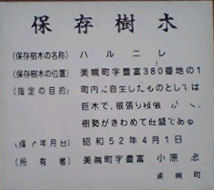 保存樹木
(保存樹木の名称) ハルニレ
(保存樹木の位置) 美幌町字豊富380番地の1
(指定の目的) 町内に自生したものとしては
巨木で、根張り枝張
樹勢がきわめて旺盛である
年月日) 昭和52年4月1日
(所有者) 美幌町字豊富 小原
美幌町